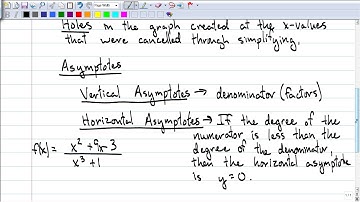 Holes in the graph created at the x-values
that were cancelled through simplifying.
Asymptotes
Vertical Asymptotes → denominator (factors)
Horizontal Asymptotes → If the degree of the
numerator is less than the
degree of the denominator,
then the horizontal asymptote
is y=0.
f(x) = x² + 9x - 3 / x³ + 1